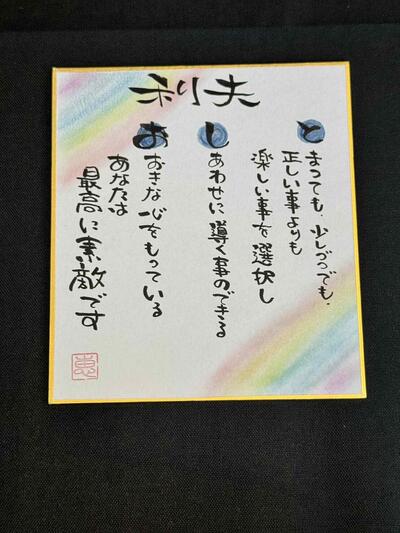 利夫
とまっても、少しづつでも、
正しい事よりも
楽しい事を選択し
しあわせに導く事のできる
おおきな心をもっている
あなたは
最高に素敵です
恵